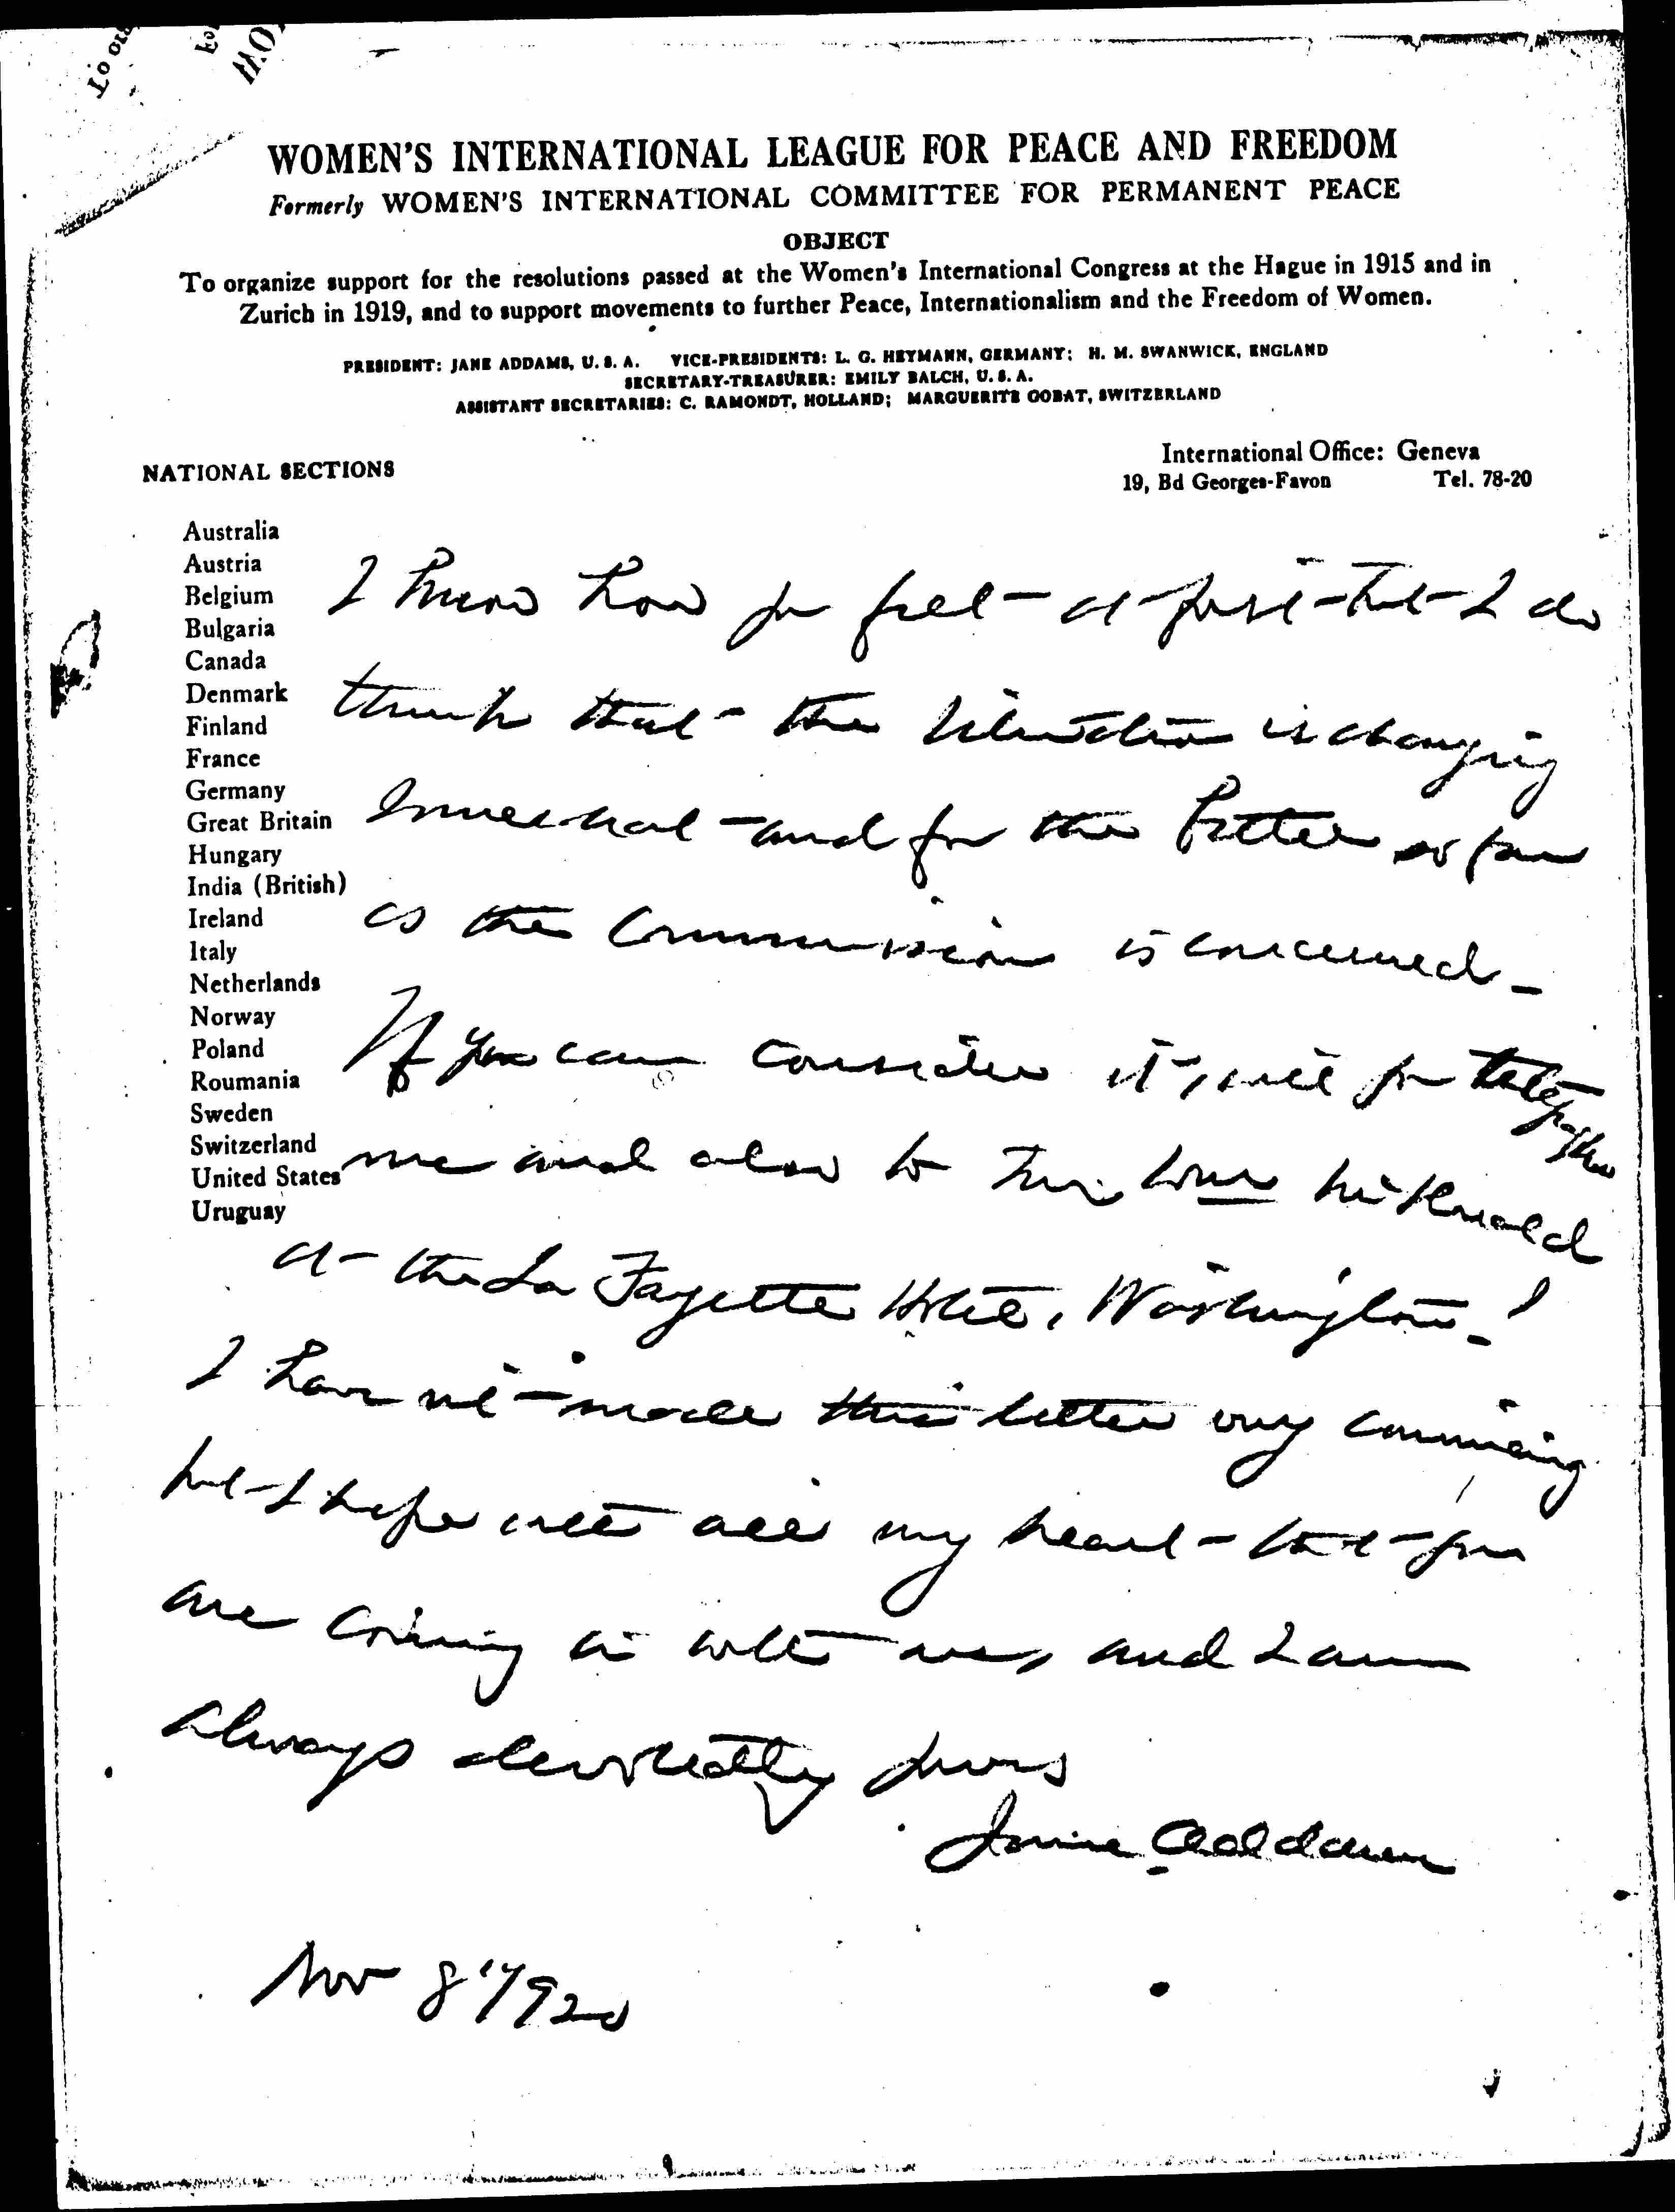 WOMEN'S INTERNATIONAL LEAGUE FOR PEACE AND FREEDOM
Formerly WOMEN'S INTERNATIONAL COMMITTEE FOR PERMANENT PEACE
OBJECT
To organize support for the resolutions passed at the Women's International Congress at the Hague in 1915 and in
Zurich in 1919, and to support movements to further Peace, Internationalism and the Freedom of Women.
PRESIDENT: JANE ADDAMS, U. S. A. VICE-PRESIDENTS: L. G. HEYMANN, GERMANY; H. M. SWANWICK, ENGLAND
SECRETARY-TREASURER: EMILY BALCH, U. S. A.
ASSISTANT SECRETARIES: C. RAMONDT, HOLLAND; MARGUERITE GOBAT, SWITZERLAND
International Office: Geneva
19, Bd Georges-Favon Tel. 78-20
NATIONAL SECTIONS
Australia
Austria
Belgium
Bulgaria
Canada
Denmark
Finland
France
Germany
Great Britain
Hungary
India (British)
Ireland
Italy
Netherlands
Norway
Poland
Roumania
Sweden
Switzerland
United States
Uruguay
I know how you feel at first but I do
think that the situation is changing
somewhat and for the better so far
as the Commission is concerned _
If you can consider it, will you telegraph
me and also to
at the La Fayette Hotel, Washington _ !
I have not made this letter very convincing
but I hope with all my heart that you
are coming in with us, and I am
always devotedly yours
Jane Addams
Nov 8" 1920